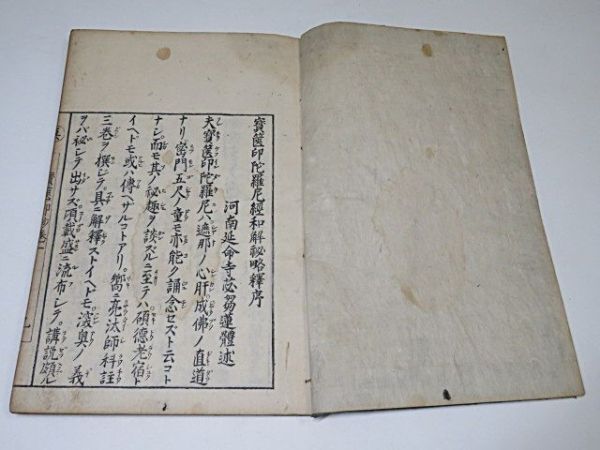 寶篋印陀羅尼經和解秘略釋序
河南延命寺苾芻蓮體述
夫寶篋印陀羅尼ハ遮那ノ心肝成佛ノ直道
ナリ密門五尺ノ童モ亦能ク誦念セズト云コト
ナシ而モ其ノ秘趣ヲ談ズルニ至テハ碩德老宿ト
イヘドモ或ハ傳ヘサルコトアリ嚮ニ亮汰師科註
三卷ヲ撰シテ具ニ解釋ストイヘドモ深奧ノ義
ヲバ秘シテ出サズ頃載盛ニ流布シテ講說頗ル